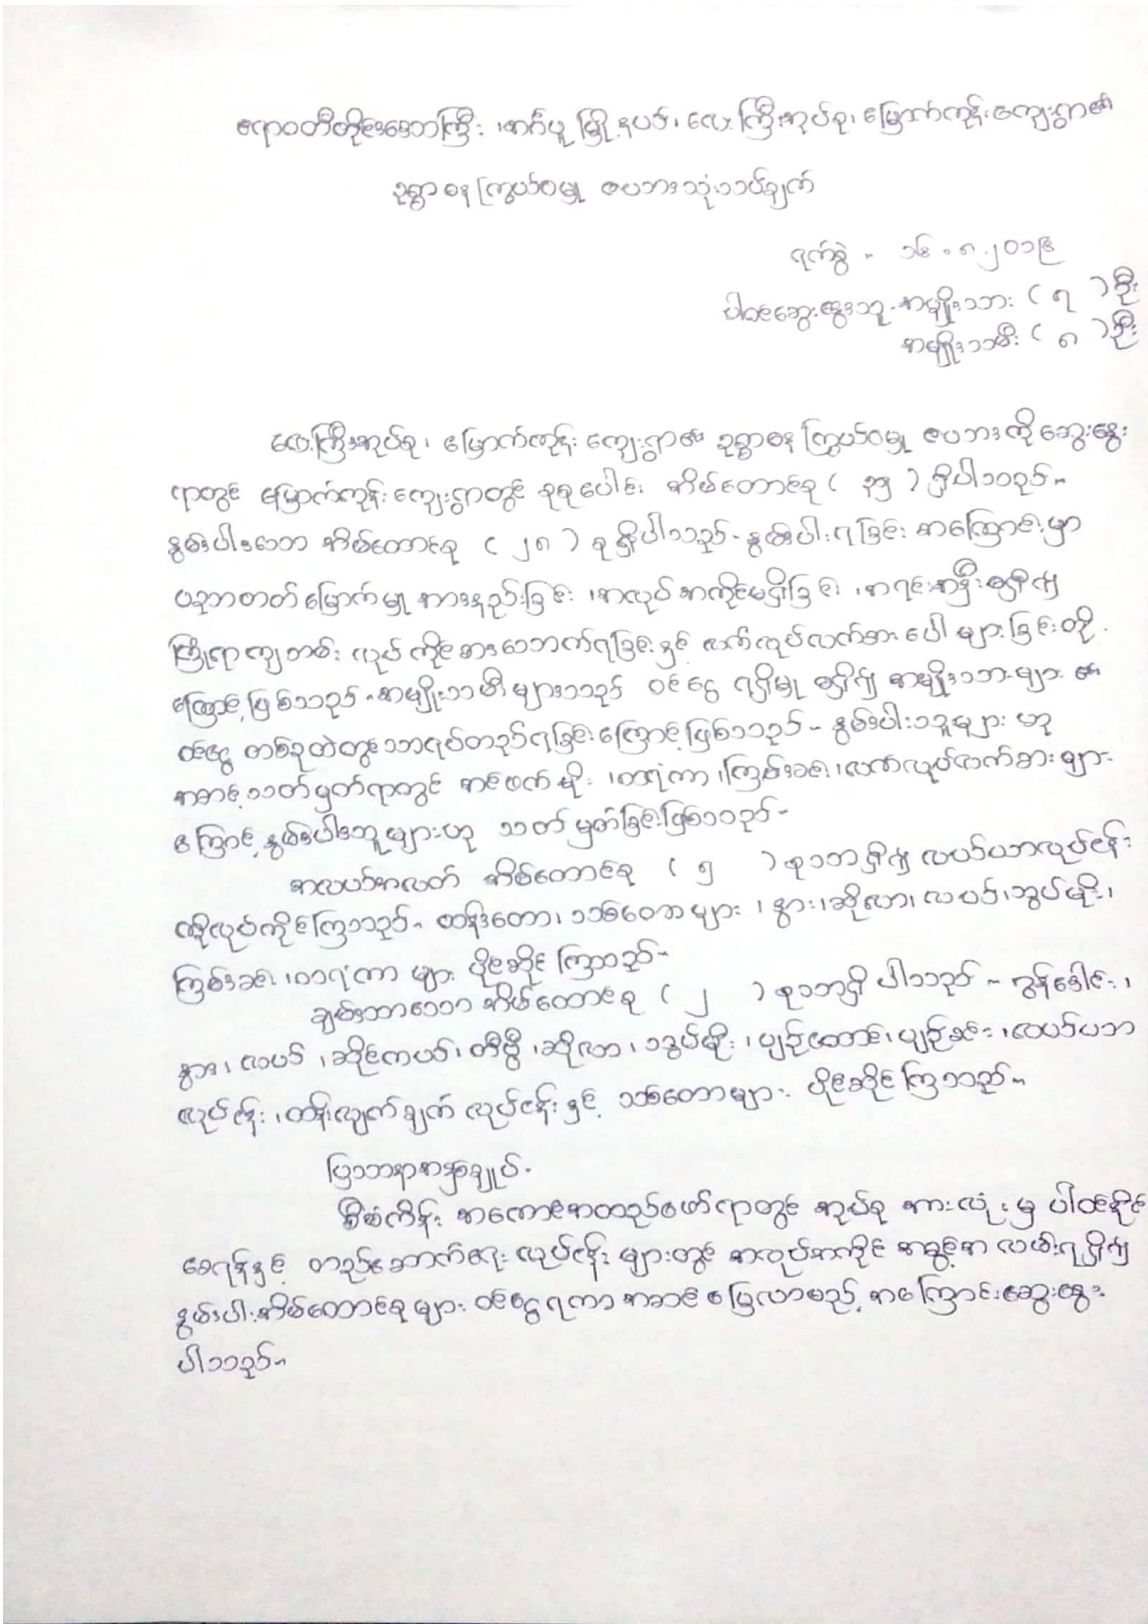 ဧရာဝတီတိုင်းဒေသကြီး ၊ အင်္ဂပူ မြို့နယ်၊ လေးကြီးအုပ်စု၊ မြောက်ကုန်းကျေးရွာ၏
ဥစ္စာဓန ကြွယ်ဝမှု ဇယားသုံးသပ်ချက်
ရက်စွဲ - ၁၆.၈.၂၀၁၉
ပါဝင်ဆွေးနွေးသူ - အမျိုးသား ( ၇ ) ဦး
အမျိုးသမီး ( ၈ ) ဦး
လေးကြီးအုပ်စု၊ မြောက်ကုန်း ကျေးရွာ၏ ဥစ္စာဓန ကြွယ်ဝမှု ဇယားကို ဆွေးနွေး
ရာတွင် မြောက်ကုန်းကျေးရွာတွင် စုစုပေါင်း အိမ်ထောင်စု ( ၃၅ ) ရှိပါသည်။
နွမ်းပါးသော အိမ်ထောင်စု ( ၂၈ ) စု ရှိပါသည်။ နွမ်းပါးရခြင်း အကြောင်းမှာ
ပညာတတ်မြောက်မှု အားနည်းခြင်း ၊ အလုပ်အကိုင်မရှိခြင်း ၊ အရင်းအနှီးမရှိ၍
ကြုံရာကျပန်း လုပ်ကိုင်စားသောက်ရခြင်းနှင့် လက်လုပ်လက်စား ပေါများခြင်းတို့
ကြောင့် ဖြစ်သည်။ အမျိုးသမီးများသည် ဝင်ငွေ ရရှိမှု မရှိ၍ အမျိုးသားများ ၏
ဝင်ငွေ တစ်ခုတည်းသာရပ်တည်ရခြင်းကြောင့်ဖြစ်သည်။ နွမ်းပါးသူများ ဟု
အဆင့်သတ်မှတ်ရာတွင် အင်ဖက်မိုး ၊ ထရံကာ ၊ ကြမ်းခင်း ၊ လက်လုပ်လက်စား များ
ကြောင့် နွမ်းပါးသူများဟု သတ်မှတ်ခြင်းဖြစ်သည်။
အလယ်အလတ် အိမ်ထောင်စု ( ၅ ) စုသာရှိ၍ လယ်ယာလုပ်ငန်း
ကိုလုပ်ကိုင်ကြသည်။ ထန်းတော၊ သစ်တောများ ၊ နွား ၊ ဆိုလာ၊ လယ် ၊ သွပ်မိုး ၊
ကြမ်းခင်း ၊ ထရံကာ များ ပိုင်ဆိုင်ကြသည်။
ချမ်းသာသော အိမ်ထောင်စု ( ၂ ) စုသာရှိ ပါသည်။ ကွန်ဒေါင်း ၊
နွား ၊ လယ် ၊ ဆိုင်ကယ် ၊ တီဗွီ ၊ ဆိုလာ ၊ သွပ်မိုး ၊ ပျဉ်ထောင် ၊ ပျဉ်ခင်း ၊ လယ်ယာ
လုပ်ငန်း ၊ ထန်းလျက်ချက် လုပ်ငန်းနှင့် သစ်တောများ ပိုင်ဆိုင်ကြသည်။
ပြဿနာအနှစ်ချုပ်-
စီမံကိန်း အကောင်အထည်ဖော်ရာတွင် အုပ်စု အားလုံးမှ ပါဝင်နိုင်
စေရန်နှင့် တည်ဆောက်ရေး လုပ်ငန်းများတွင် အလုပ်အကိုင် အခွင့်အလမ်းရရှိ၍
နွမ်းပါးအိမ်ထောင်စုများ ဝင်ငွေရကာ အဆင်ပြေလာမည့် အကြောင်းဆွေးနွေး
ပါသည်။